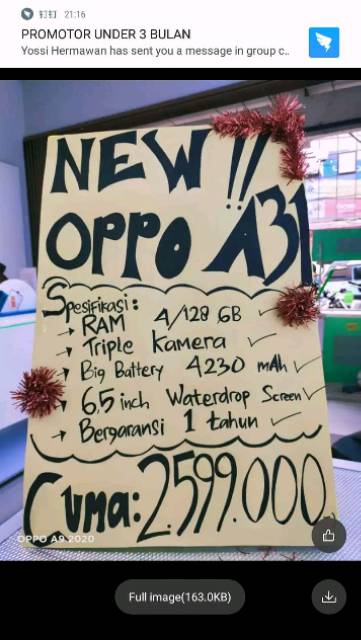 钉钉 21:16
PROMOTOR UNDER 3 BULAN
Yossi Hermawan has sent you a message in group c..
NEW !!
OPPO A31
Spesifikasi:
→ RAM 4/128 GB ✓
→ Triple Kamera ✓
→ Big Battery 4230 mAh ✓
→ 6,5 inch Waterdrop Screen ✓
→ Bergaransi 1 tahun ✓
Cuma: 2.599.000
OPPO A9 2020
Full image(163.0KB)